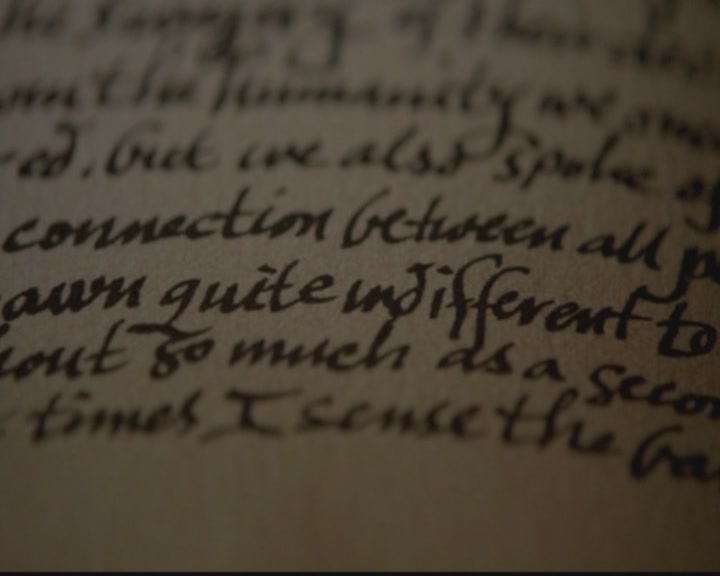 of
the humanity we
ed, but we also spoke of
connection between all
awn quite indifferent to
out so much as a secon
times I sense the ba